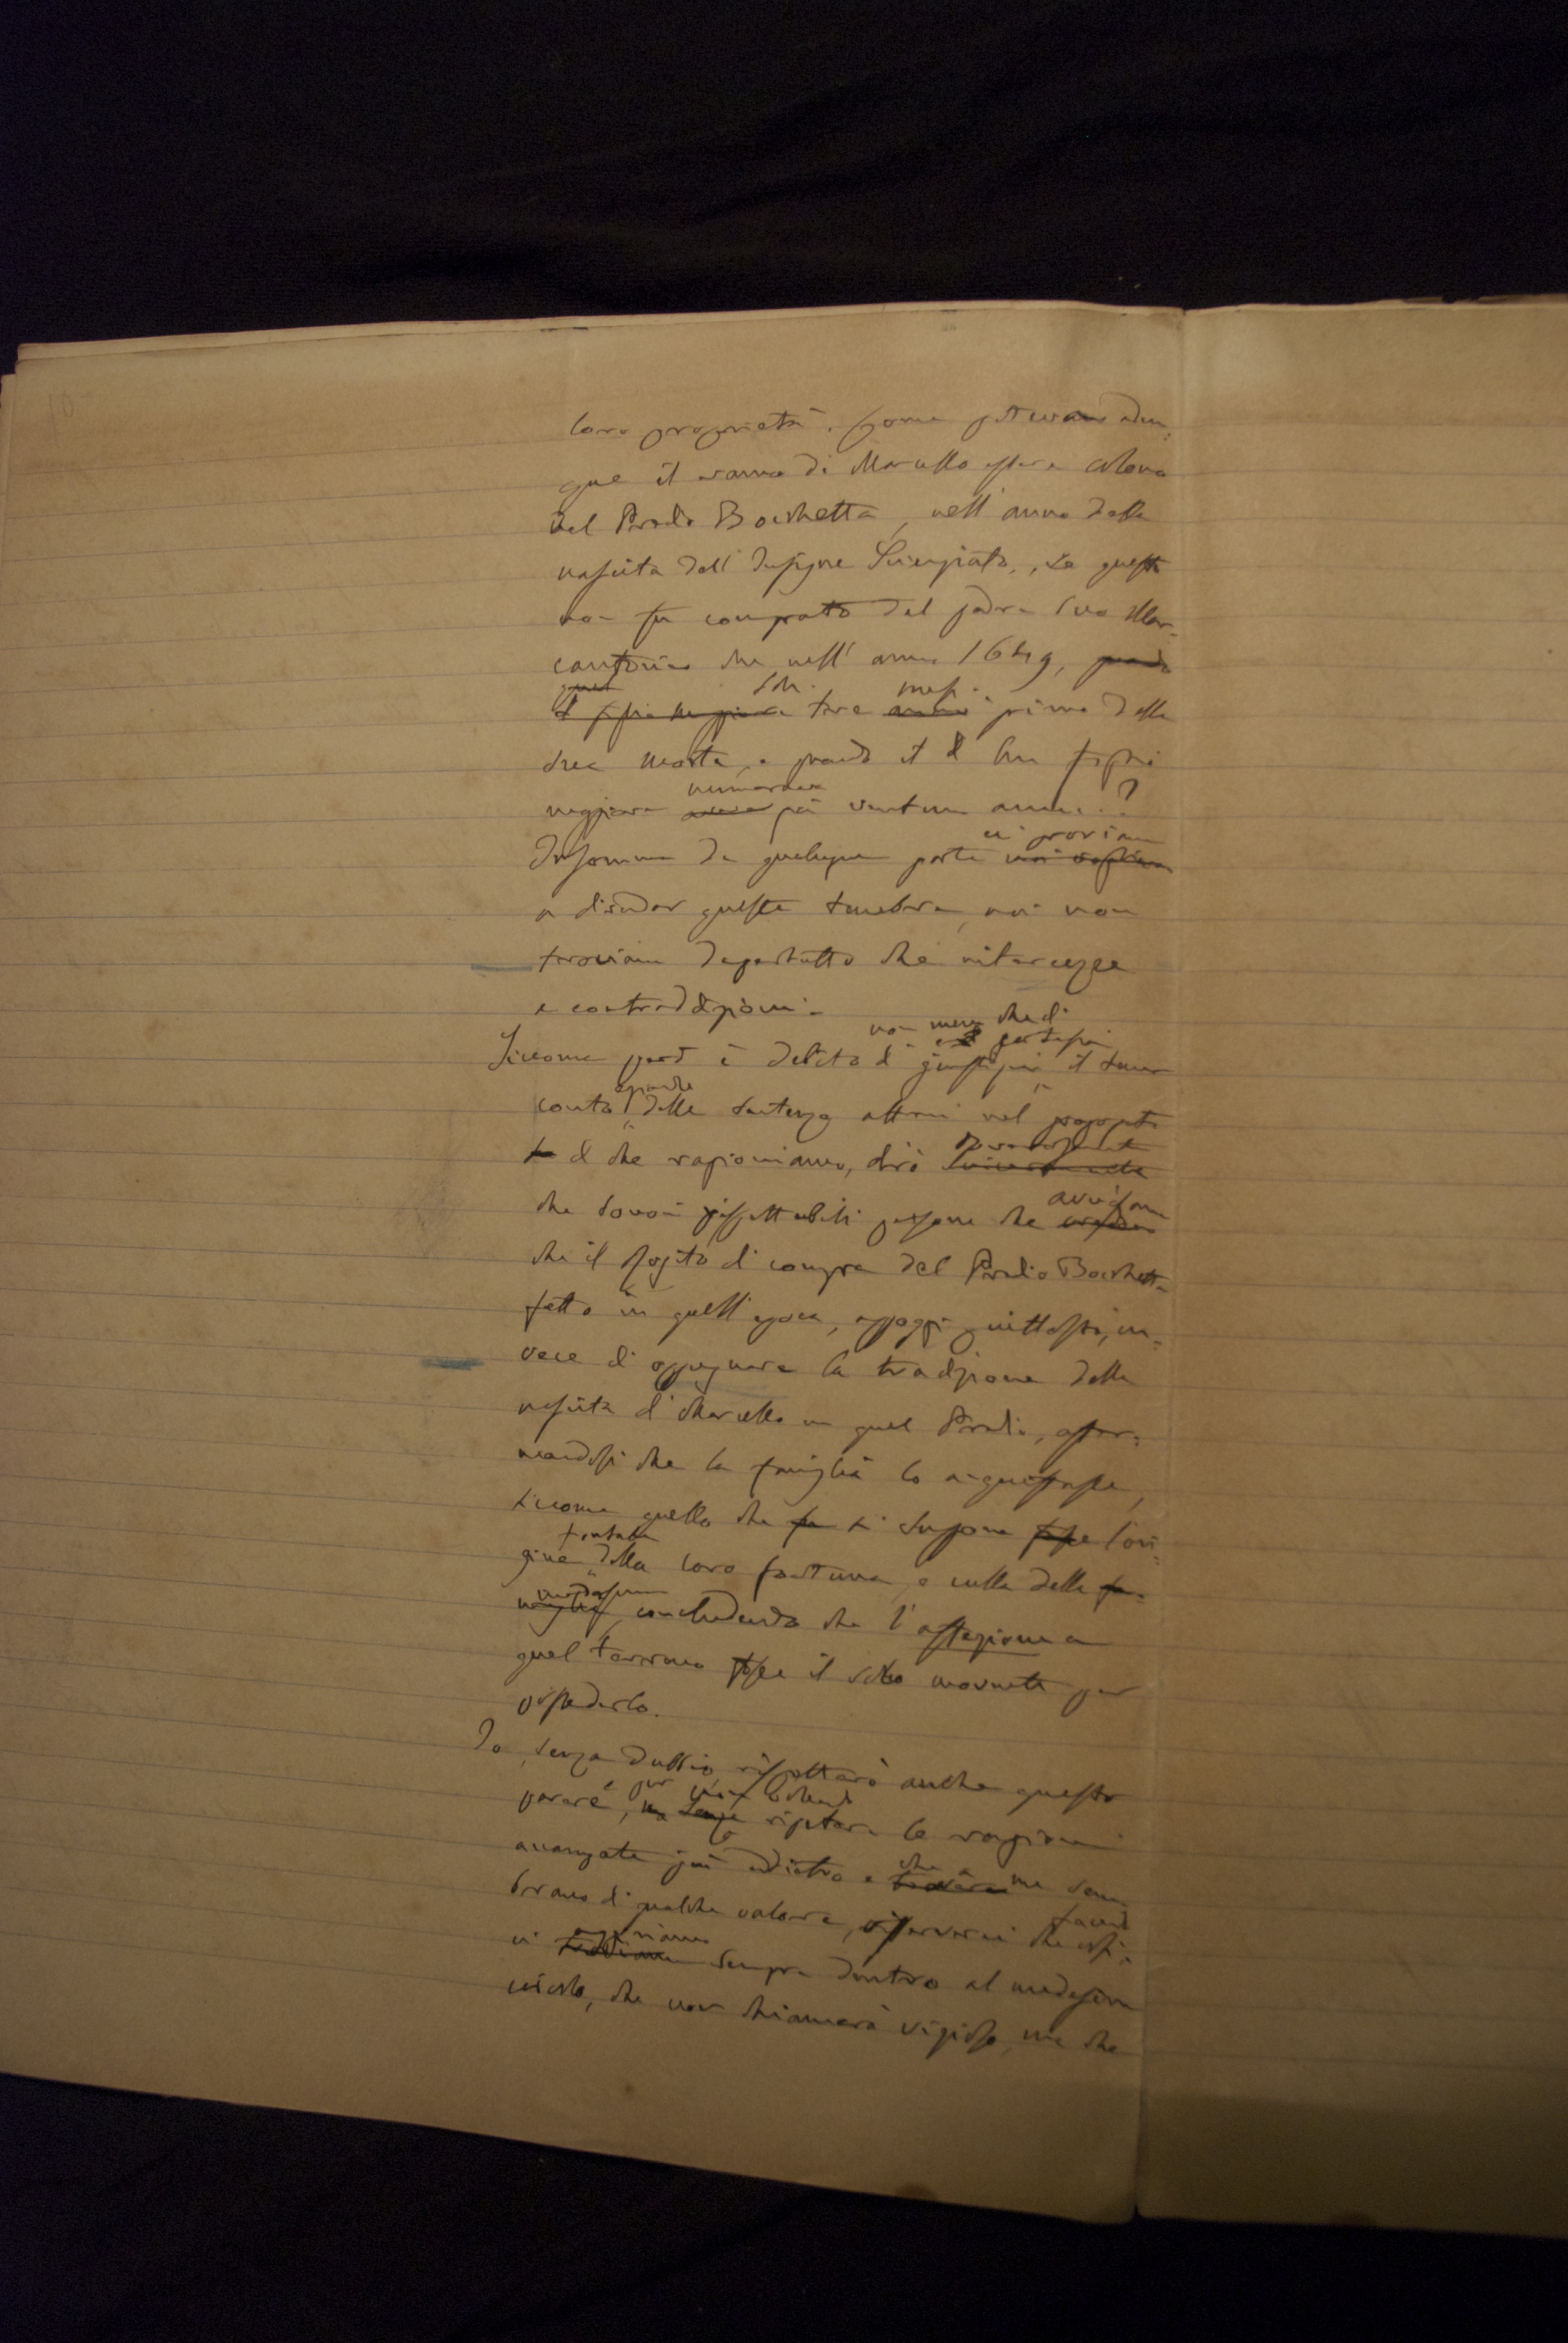 loro proprietà. Come potevano adun-
que il ramo di Marcello essere colono
del Predio Boschetta, nell'anno della
nascita dell'insigne Scienziato, se questo
non fu comprato dal padre suo Mar-
cantonio che nell'anno 1649,
tre mesi prima della
sua morte, e quando il di lui figlio
maggiore numerava già ventun anni..?
Insomma da qualunque parte ci proviam
a diradar queste tenebre, noi non
troviam dapertutto che incertezze
e contraddizioni.
Siccome però è debito di giustizia non meno che di cortesia il tener
conto eziandio delle sentenze altrui nel proposito
di che ragioniamo, dirò
che sonovi rispettabili persone che avvisano
che il Rogito di compra del Predio Boschetta
fatto in quell'epoca, appoggi piuttosto, in-
vece di oppugnare la tradizione della
nascita di Marcello in quel Predio, affer-
mandosi che la famiglia lo acquistasse,
siccome quello che fu si suppone fosse l'ori-
gine della loro fortuna, e culla della fa-
miglia, concludendo che l'affezione a
quel terreno fosse il solo movente per
possederlo.
Io, senza dubbio, rispetterò anche questo
parere, ripetere le ragioni
avanzate già addietro e che me sem-
brano di qualche valore, osserverei che
ci sempre dentro al medesimo
circolo, che non chiamerò vizioso, ma che